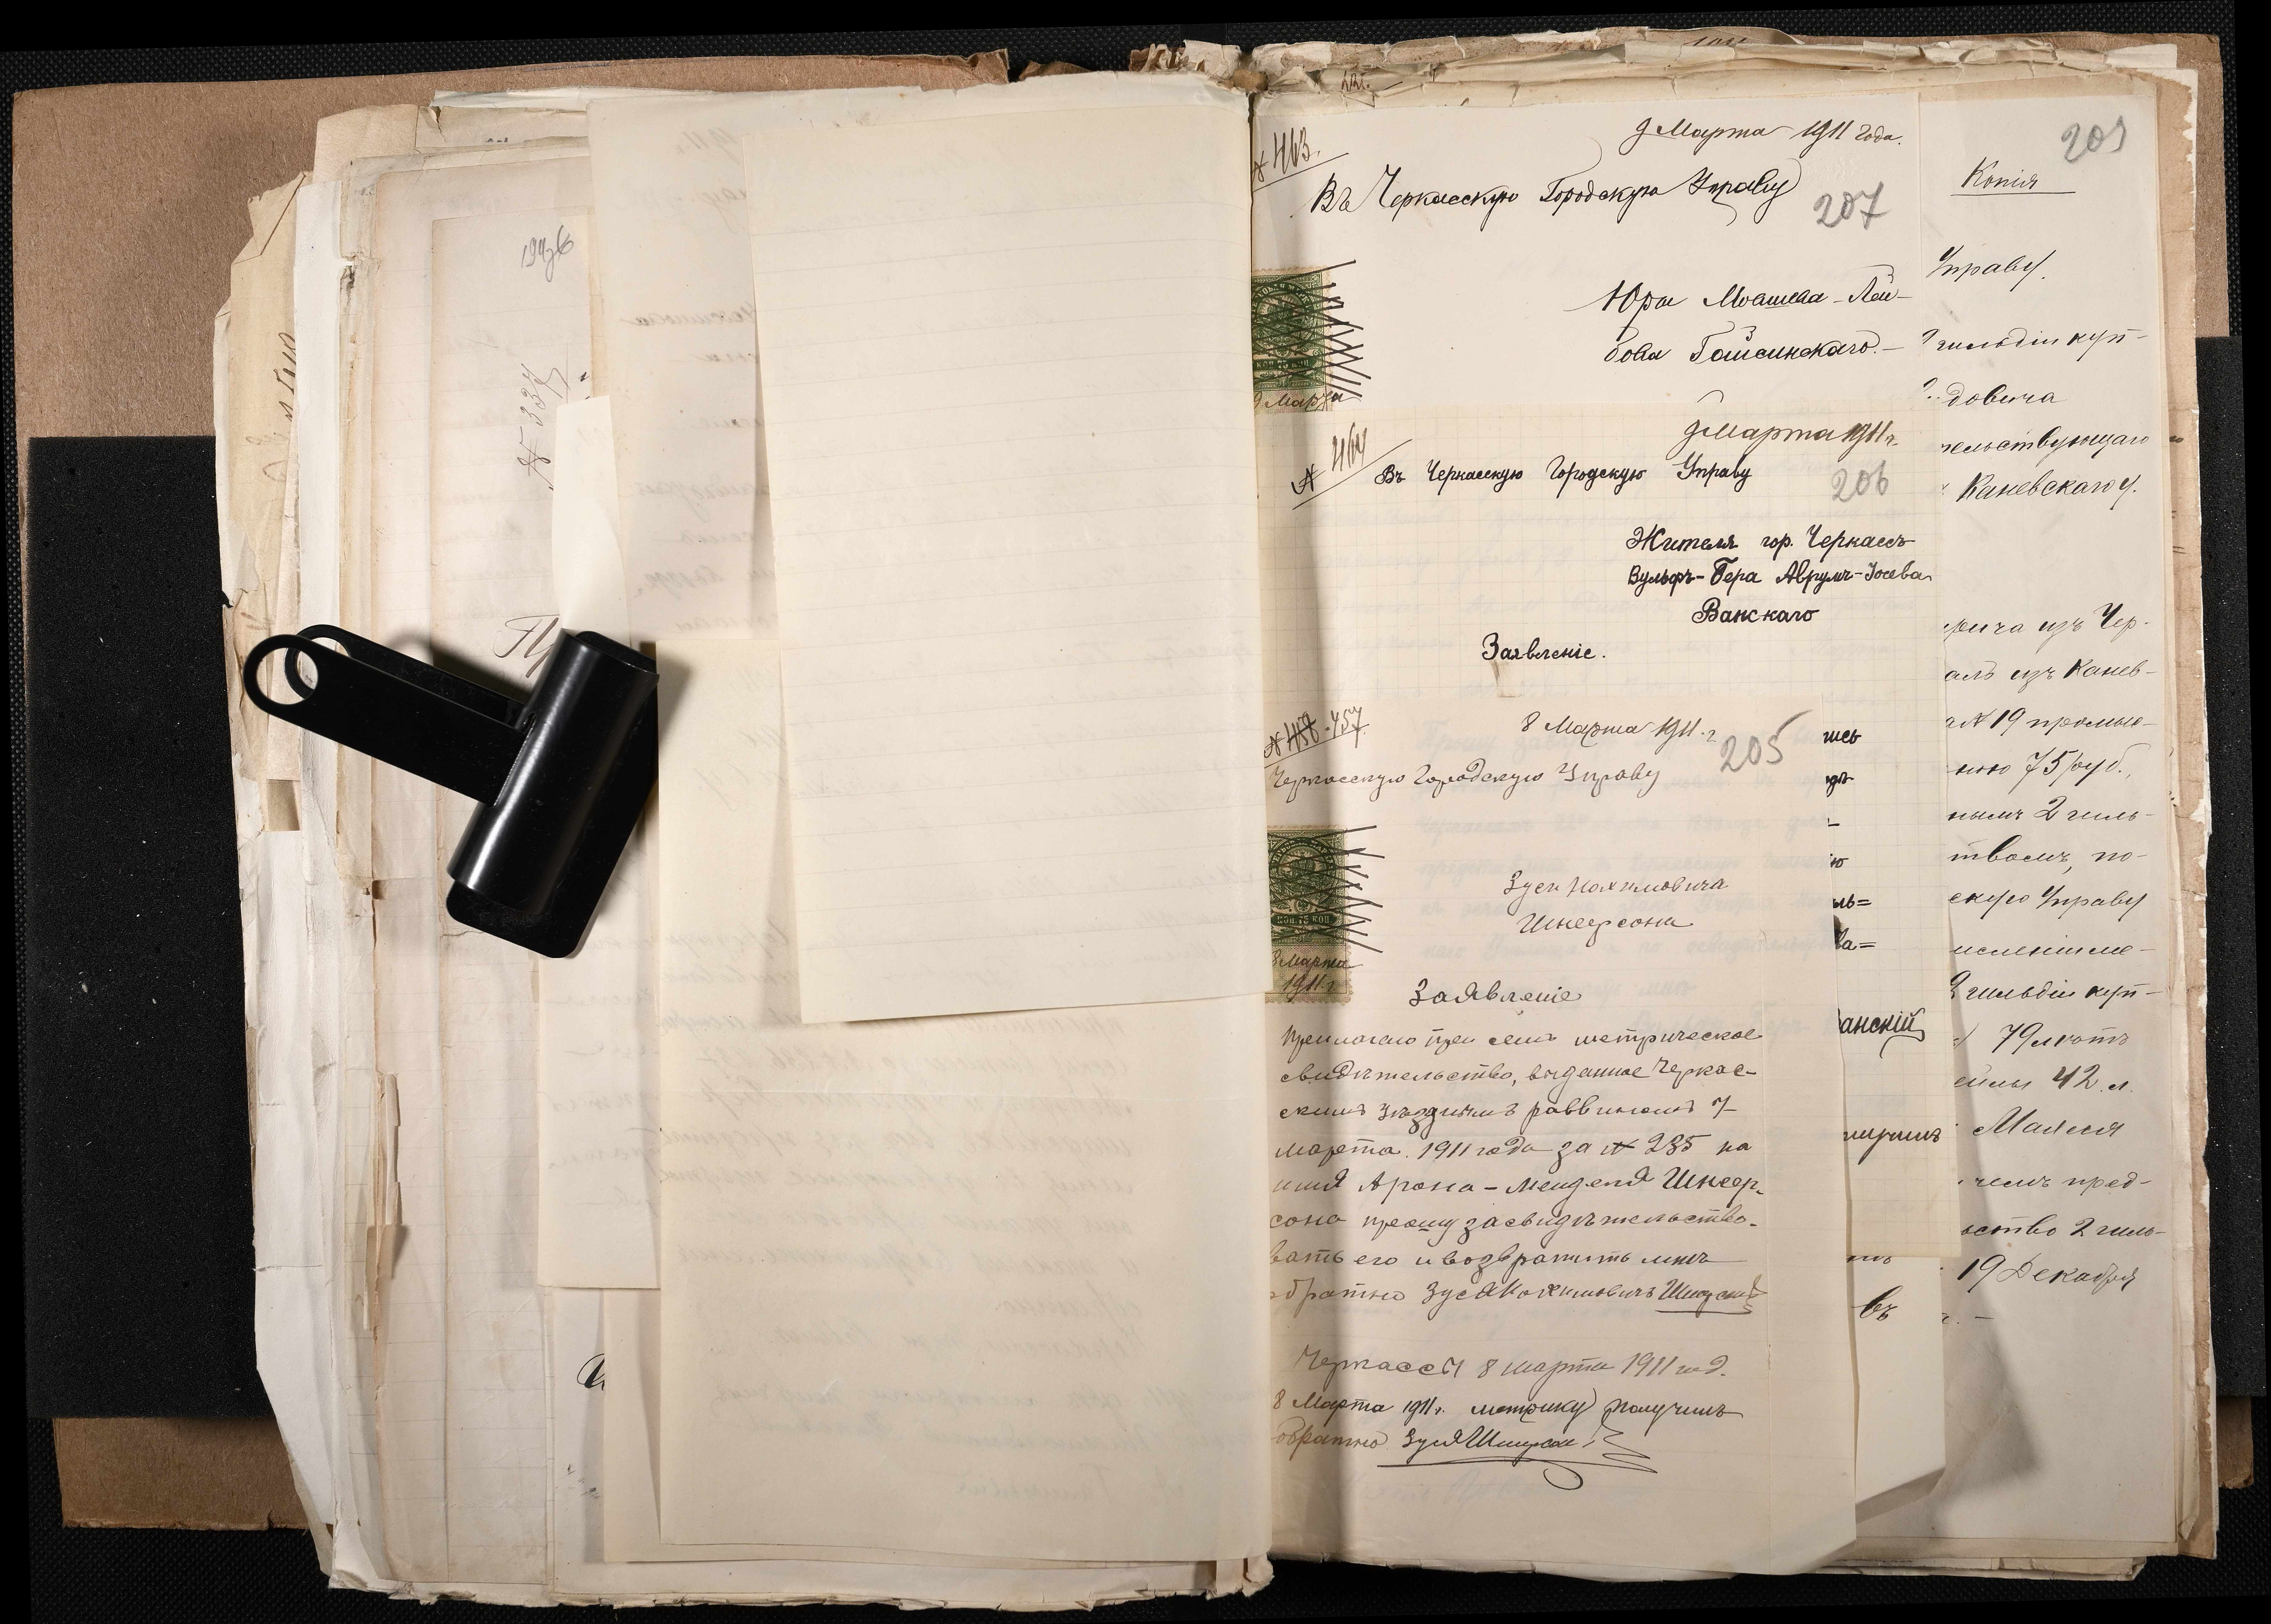 194 об
№ 337
№ 463.
9 Марта 1911 года.
Въ Черкасскую Городскую Управу
207
Юра Мошева-Лей-
бова Гайсинскаго.-
коп 75 коп
9 Марта
№ 464
9 Марта 1911 г.
Въ Черкасскую Городскую Управу
206
Жителя гор. Черкассъ
Вульфъ-Бера Аврумъ-Іосева
Ванскаго
Заявленіе.
№ 457
8 Марта 1911 г.
205
Черкасскую Городскую Управу
коп 75 коп
8 Марта
1911 г.
Зуси Нохимовича
Шнеерсона
Заявленіе
Прилагаю при семъ метрическое
свидѣтельство, выданное Черкас-
скимъ Уѣзднымъ раввиномъ 7
марта 1911 года за № 235 на
имя Арона-Менделя Шнеер-
сона прошу засвидѣтельство-
вать его и возвратить мнѣ
обратно Зуся Нохимовичъ
Черкассы 8 марта 1911 год.
8 Марта 1911 г. метрику получилъ
обратно Зуся
шсь
ль=
ва=
анскій
въ
209
Копія
Управу.
гильдіи куп-
довича
тельствующаго
Каневскаго у.
вича изъ Чер-
алъ изъ Канев-
№ 19 промыс-
ною 75 руб.,
нымъ 2 гиль-
твомъ, по-
скую Управу
исленіи ме-
2 гильдіи куп-
79 лѣтъ
42 л.
чемъ пред-
ьство 2 гиль-
19 Декабря